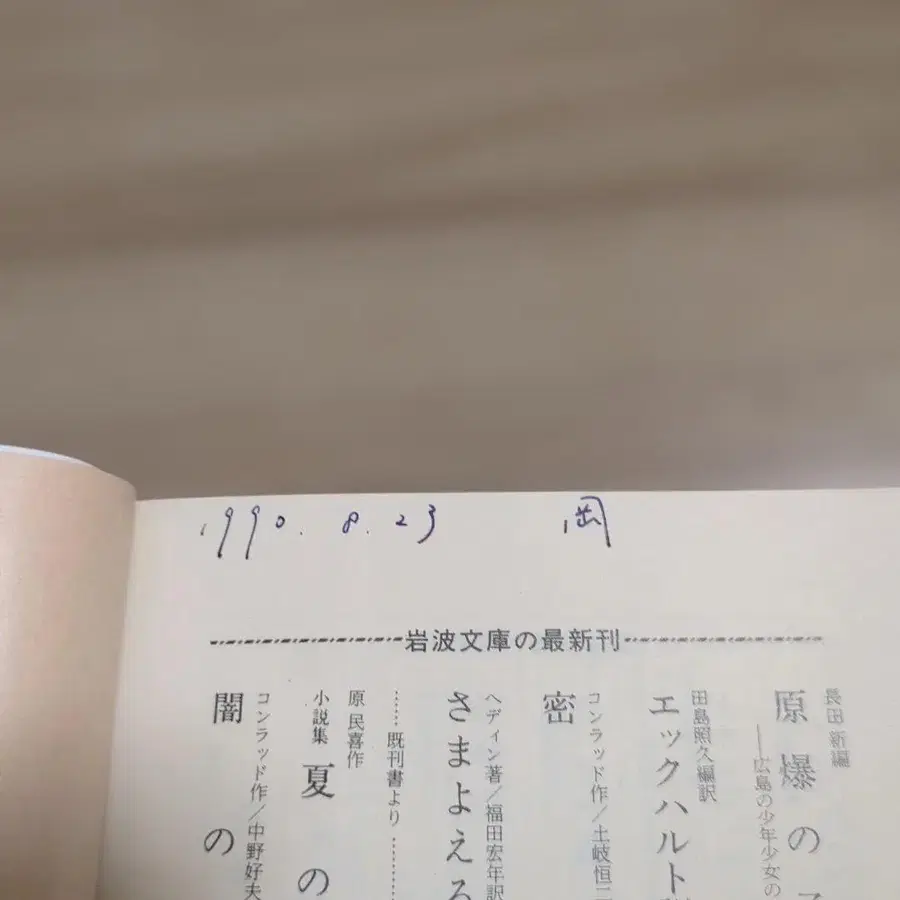 1990. 8. 23 岡
岩波文庫の最新刊
長田 新編
原爆の
──広島の少年少女の
田島照久編訳
エックハルト
コンラッド作/土岐恒二
密
ヘディン著/福田宏年訳
さまよえ
……既刊書より……
原 民喜作
小説集 夏の
コンラッド作/中野好夫
闇の